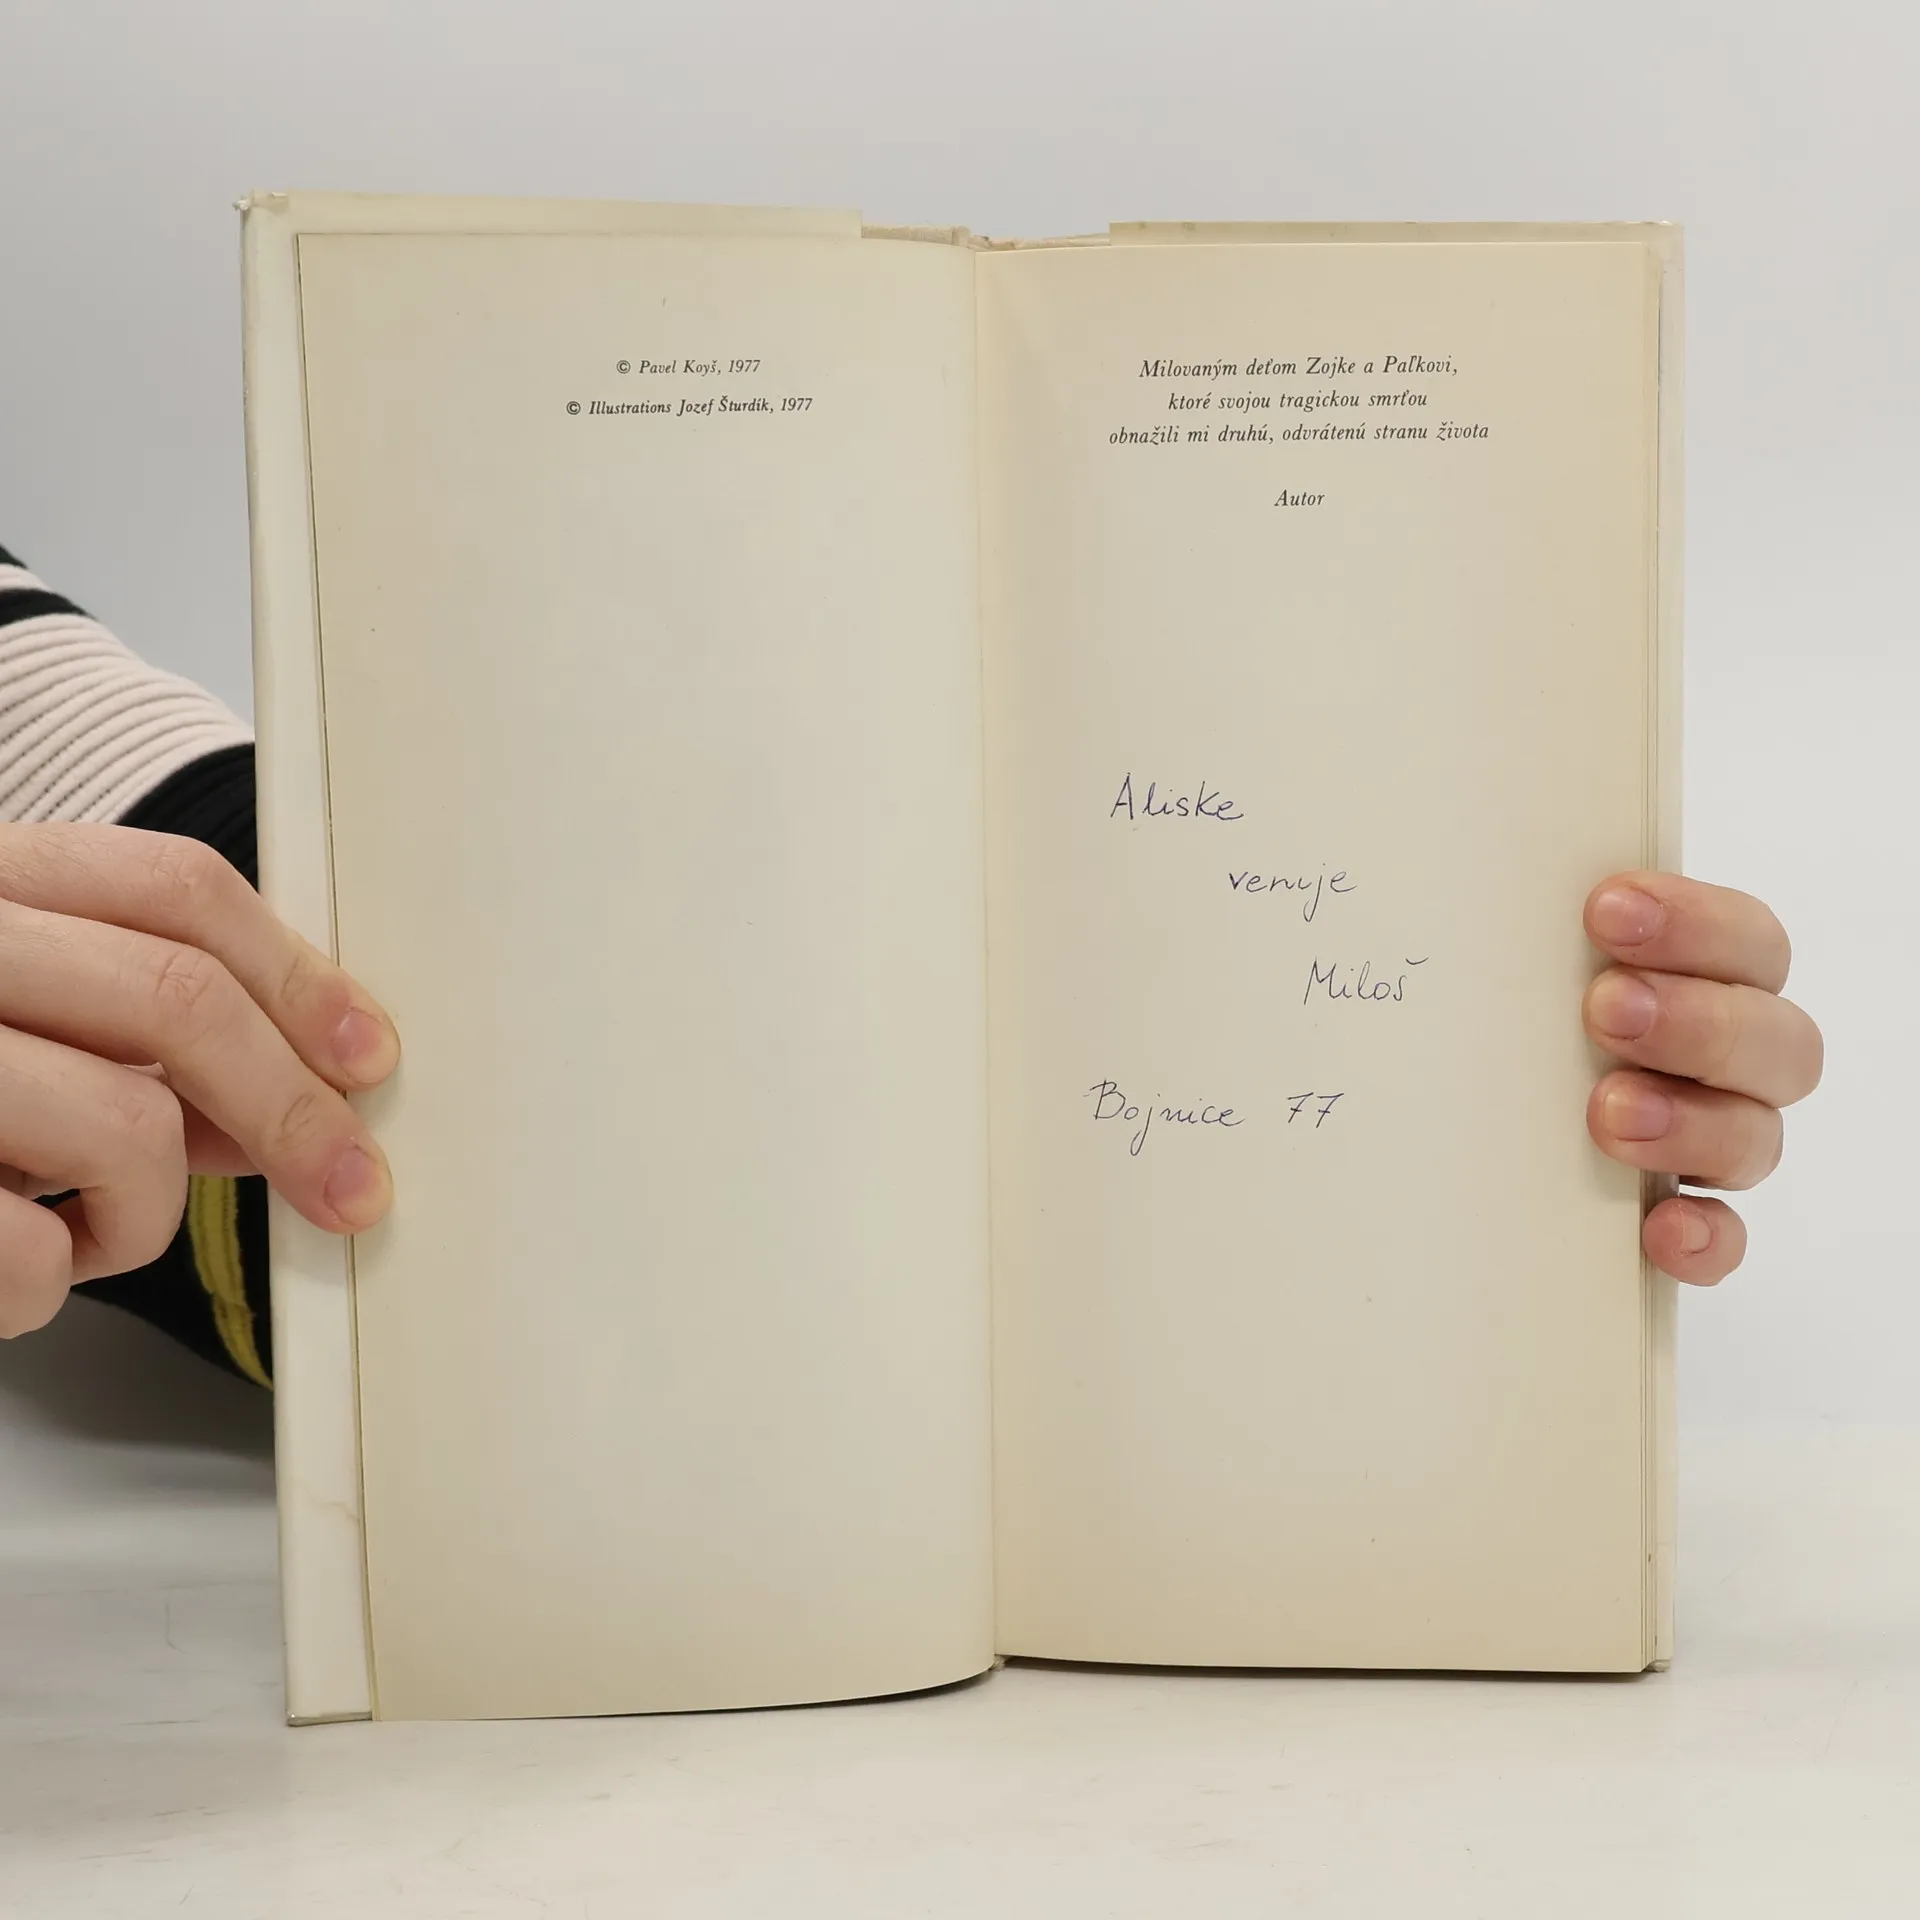 © Pavel Koyš, 1977
© Illustrations Jozef Šturdík, 1977
Milovaným deťom Zojke a Paľkovi,
ktoré svojou tragickou smrťou
obnažili mi druhú, odvrátenú stranu života
Autor
Aliske
venuje
Miloš
Bojnice 77